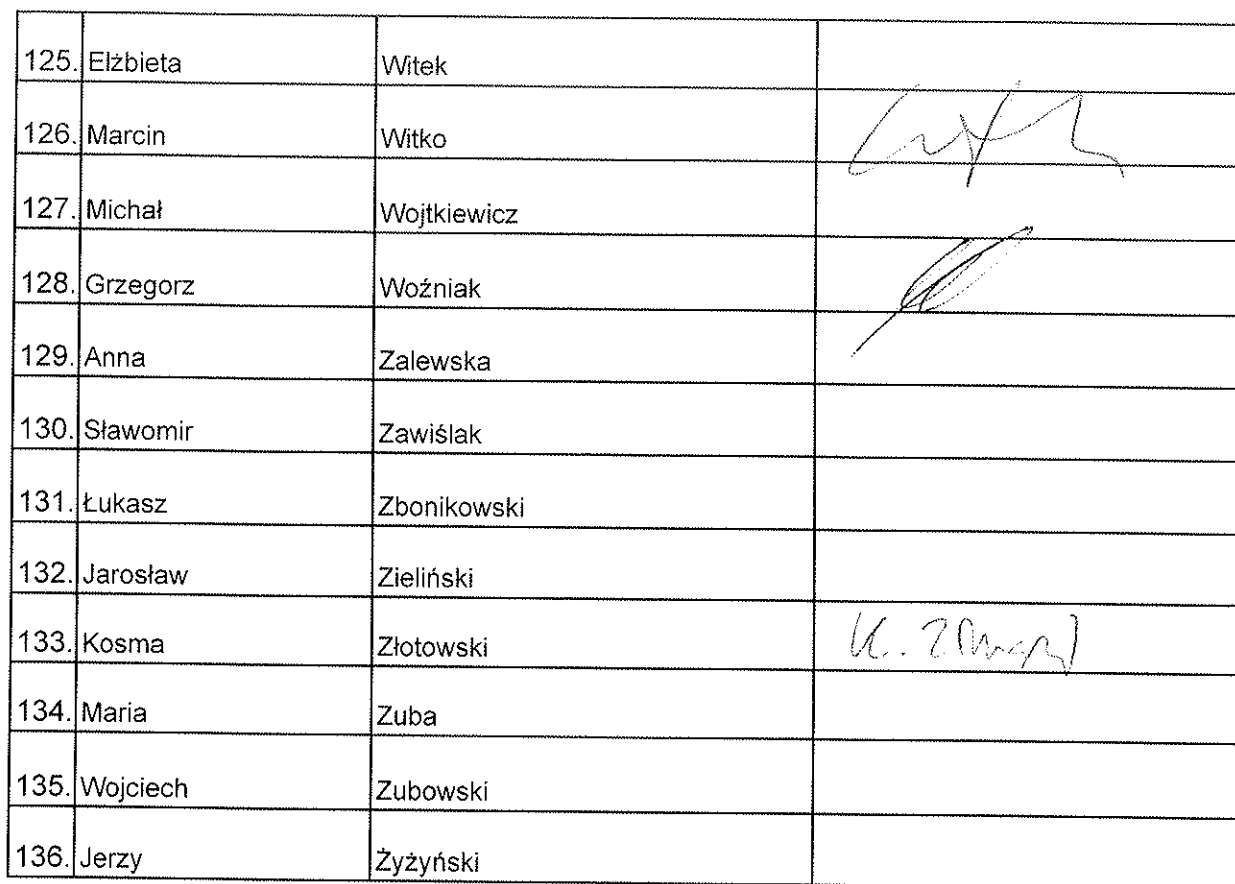 125. Elżbieta Witek
126. Marcin Witko
127. Michał Wojtkiewicz
128. Grzegorz Woźniak
129. Anna Zalewska
130. Sławomir Zawiślak
131. Łukasz Zbonikowski
132. Jarosław Zieliński
133. Kosma Złotowski
134. Maria Zuba
135. Wojciech Zubowski
136. Jerzy Żyżyński